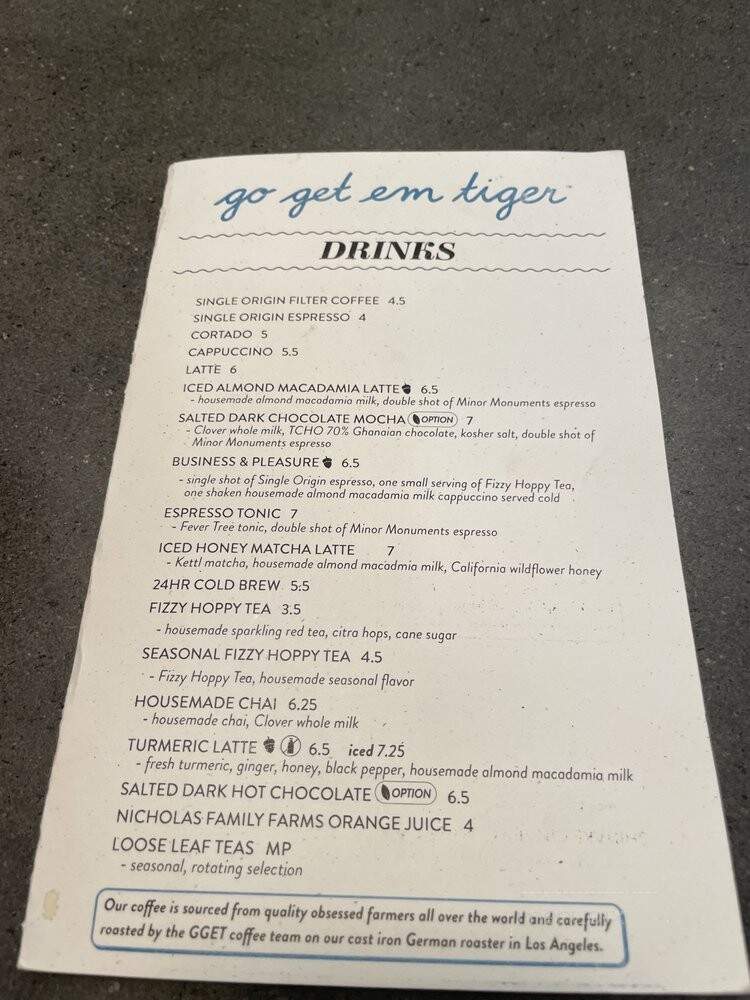 go get em tiger
DRINKS
SINGLE ORIGIN FILTER COFFEE 4.5
SINGLE ORIGIN ESPRESSO 4
CORTADO 5
CAPPUCCINO 5.5
LATTE 6
ICED ALMOND MACADAMIA LATTE 6.5
- housemade almond macadamia milk, double shot of Minor Monuments espresso
SALTED DARK CHOCOLATE MOCHA OPTION 7
- Clover whole milk, TCHO 70% Ghanaian chocolate, kosher salt, double shot of
Minor Monuments espresso
BUSINESS & PLEASURE 6.5
- single shot of Single Origin espresso, one small serving of Fizzy Hoppy Tea,
one shaken housemade almond macadamia milk cappuccino served cold
ESPRESSO TONIC 7
- Fever Tree tonic, double shot of Minor Monuments espresso
ICED HONEY MATCHA LATTE 7
- Kettl matcha, housemade almond macadmia milk, California wildflower honey
24HR COLD BREW 5:5
FIZZY HOPPY TEA 3.5
- housemade sparkling red tea, citra hops, cane sugar
SEASONAL FIZZY HOPPY TEA 4.5
- Fizzy Hoppy Tea, housemade seasonal flavor
HOUSEMADE CHAI 6.25
- housemade chai, Clover whole milk
TURMERIC LATTE 6.5 iced 7.25
- fresh turmeric, ginger, honey, black pepper, housemade almond macadamia milk
SALTED DARK HOT CHOCOLATE OPTION 6.5
NICHOLAS FAMILY FARMS ORANGE JUICE 4
LOOSE LEAF TEAS MP
- seasonal, rotating selection
Our coffee is sourced from quality obsessed farmers all over the world and carefully
roasted by the GGET coffee team on our cast iron German roaster in Los Angeles.